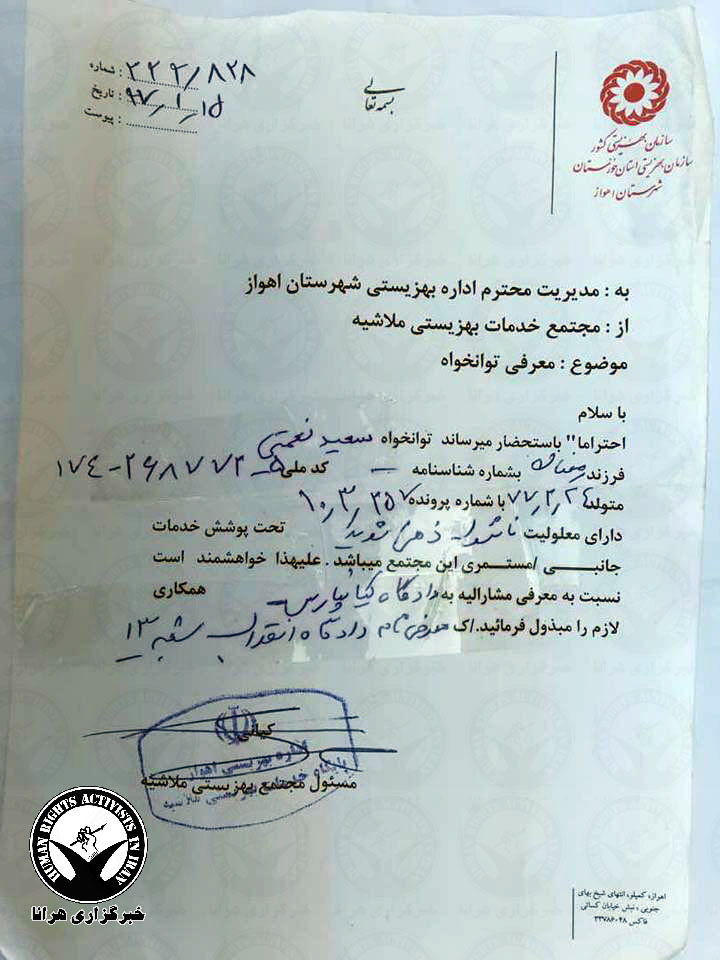 بسمه تعالی
شماره : ۲۲۹/۸۲۸
تاریخ : ۹۷/۱/۱۵
پیوست :
سازمان بهزیستی کشور
سازمان بهزیستی استان خوزستان
شهرستان اهواز
به : مدیریت محترم اداره بهزیستی شهرستان اهواز
از : مجتمع خدمات بهزیستی ملاشیه
موضوع : معرفی توانخواه
با سلام
احتراما" باستحضار میرساند توانخواه سعید نعمتی
فرزند رمضان بشماره شناسنامه — کد ملی
متولد با شماره پرونده
دارای معلولیت ناشنوا ذهنی شدید تحت پوشش خدمات
جانبی /مستمری این مجتمع میباشد . علیهذا خواهشمند است
نسبت به معرفی مشارالیه به دادگاه کیانپارس همکاری
لازم را مبذول فرمائید./ک دادگاه انقلاب شعبه ۱۳
کیانی
اداره بهزیستی اهواز
مسئول مجتمع بهزیستی ملاشیه
HUMAN RIGHTS ACTIVISTS IN IRAN
خبرگزاری هرانا
اهواز، کمپلو، انتهای شیخ بهای
جنوبی ، نبش خیابان کسائی
فاکس ۳۳۷۸۶۰۴۸